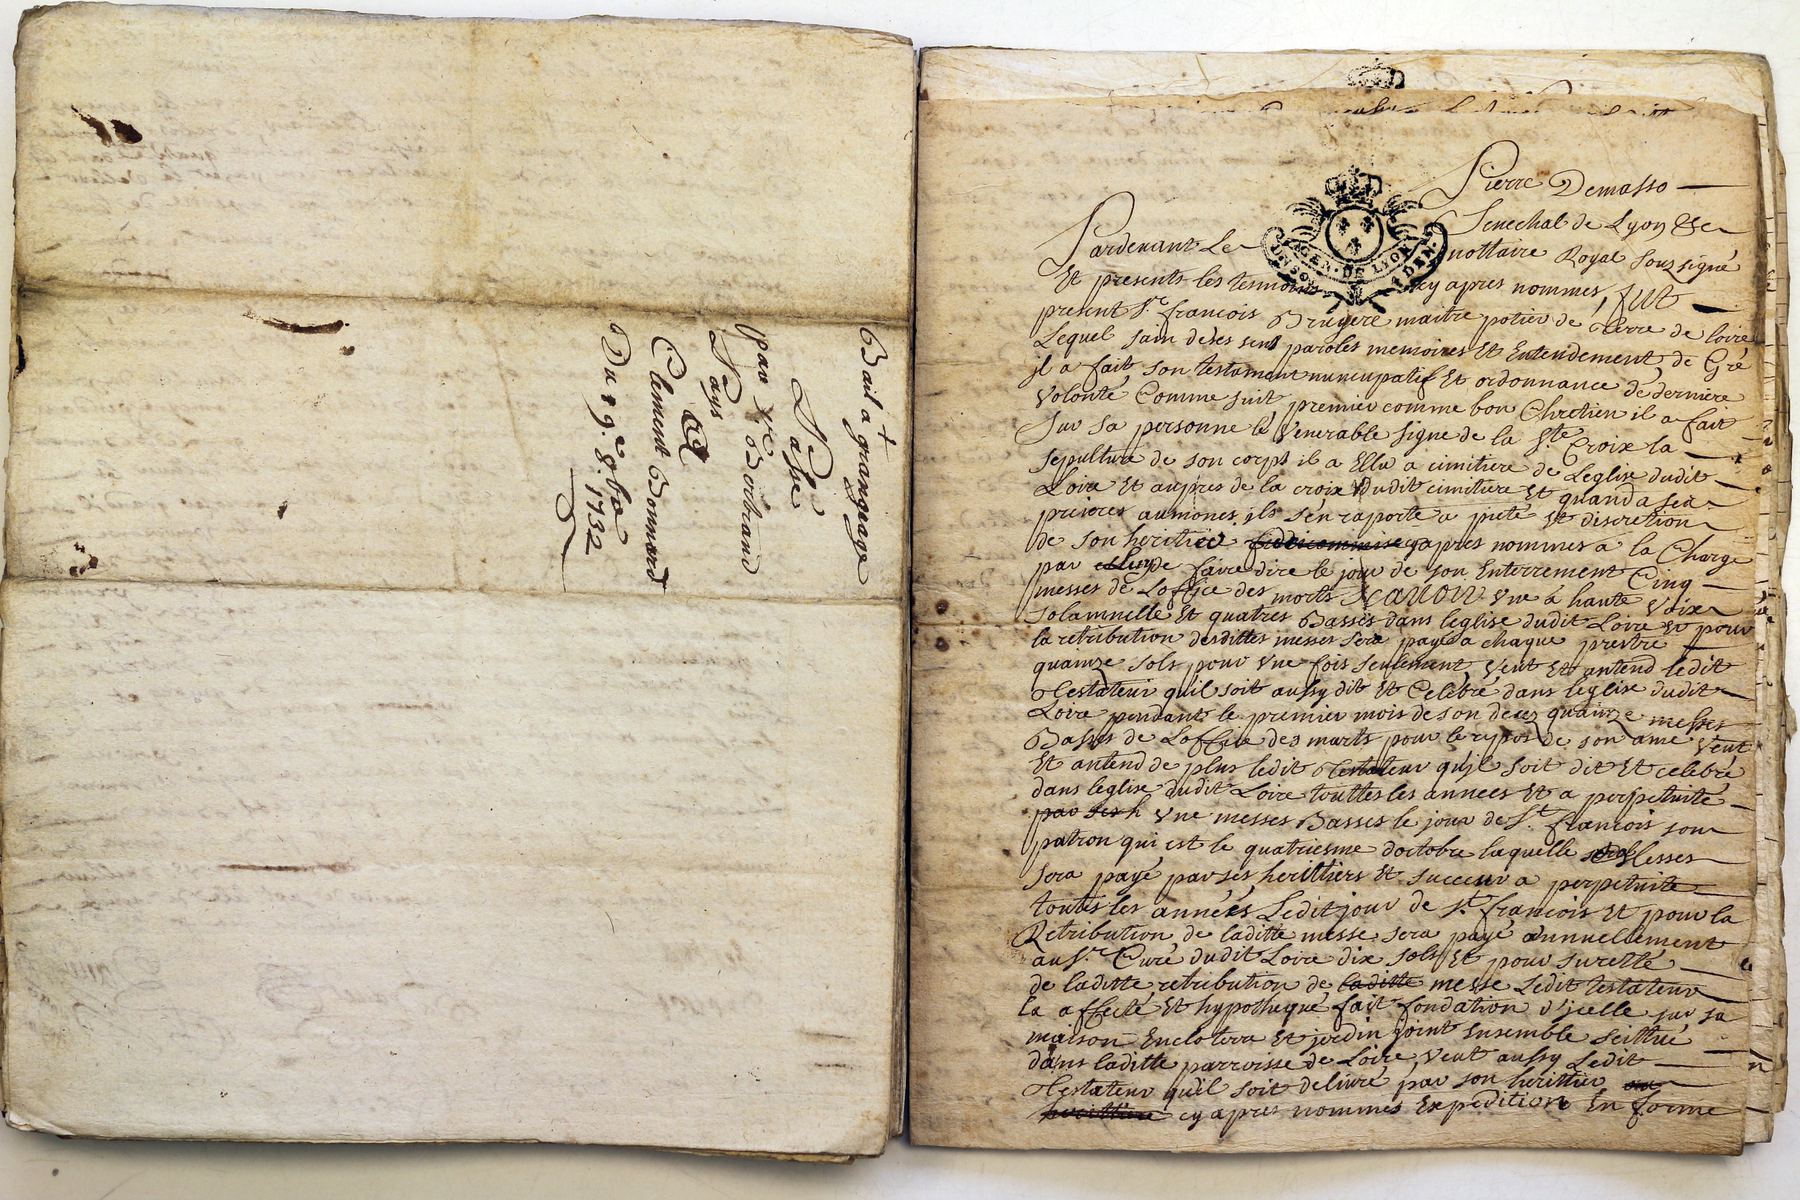 Bail a grangeage
Passé
par Sr Bertrand
Pays
A
Clement Bonnard
Du 19e 8bre
1732
Pierre Demasso
Senechal de Lyon &c
GEN. DE LYON
Pardevant Le nottaire Royal soussigné
Et presents les tesmoins cy apres nommes, fut
present Sr. francois Bruyere maitre potier de Terre de loire
Lequel sain de ses sens paroles memoires Et Entendement de Gré
il a fait son testament nuncupatif Et ordonnance de derniere
volonté Comme suit premier comme bon Chretien il a fait
sur sa personne le venerable signe de la Ste Croix la
sepulture de son corps il a Ellu a cimitiere de Leglise dudit
Loire Et aupres de la croix dudit cimitiere Et quand a ses
prieres aumones ils s'en raporte a pieté Et discretion
de son heritier cy apres nommes a la Charge
par de faire dire le jour de son Enterrement Cinq
messes de Loffice des morts Scavoir vne a haute voix
solamnelle Et quatres Basses dans leglise dudit Loire Et pour
la retribution desdittes messes sera payé a chaque prestre
quainze sols pour vne fois seulement, veut Et antend ledit
Testateur qu'il soit aussy dit Et Celebré dans leglise dudit
Loire pendant le premier mois de son decez quainze messes
Basses de Loffice des morts pour le repos de son ame veut
Et antend de plus ledit Testateur qu'il soit dit Et celebré
dans leglise dudit Loire touttes les annees Et a perpetuité
par ses h vne messes Basses le jour de St. francois son
patron qui est le quatriesme doctobre laquelle messes
sera payé par ses herittiers Et succeur a perpetuite
toutes les années Ledit jour de St. francois Et pour la
Retribution de laditte messe sera payé annuellement
au Sr. Curé dudit Loire dix sols Et pour suretté
de laditte retribution de laditte messe Ledit testateur
la affecté Et hypothequé fait fondation d'jcelle sur sa
maison Encloterre Et jardin joint Ensemble seittué
dans laditte parroisse de Loire, veut aussy Ledit
Testateur qu'il soit delivré par son herittier
cy apres nommes Expedition En forme